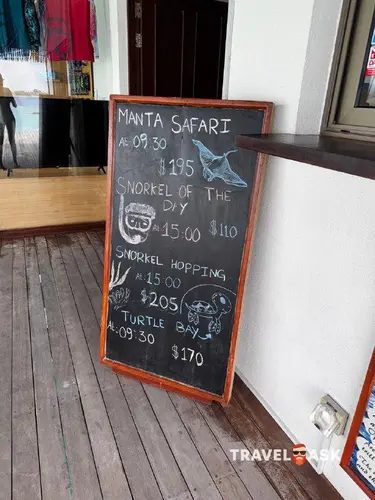 MANTA SAFARI
At 09:30
$195
SNORKEL OF THE
DAY
At 15:00 $110
SNORKEL HOPPING
At 15:00
$205
TURTLE BAY
At 09:30
$170
TRAVEL ASK